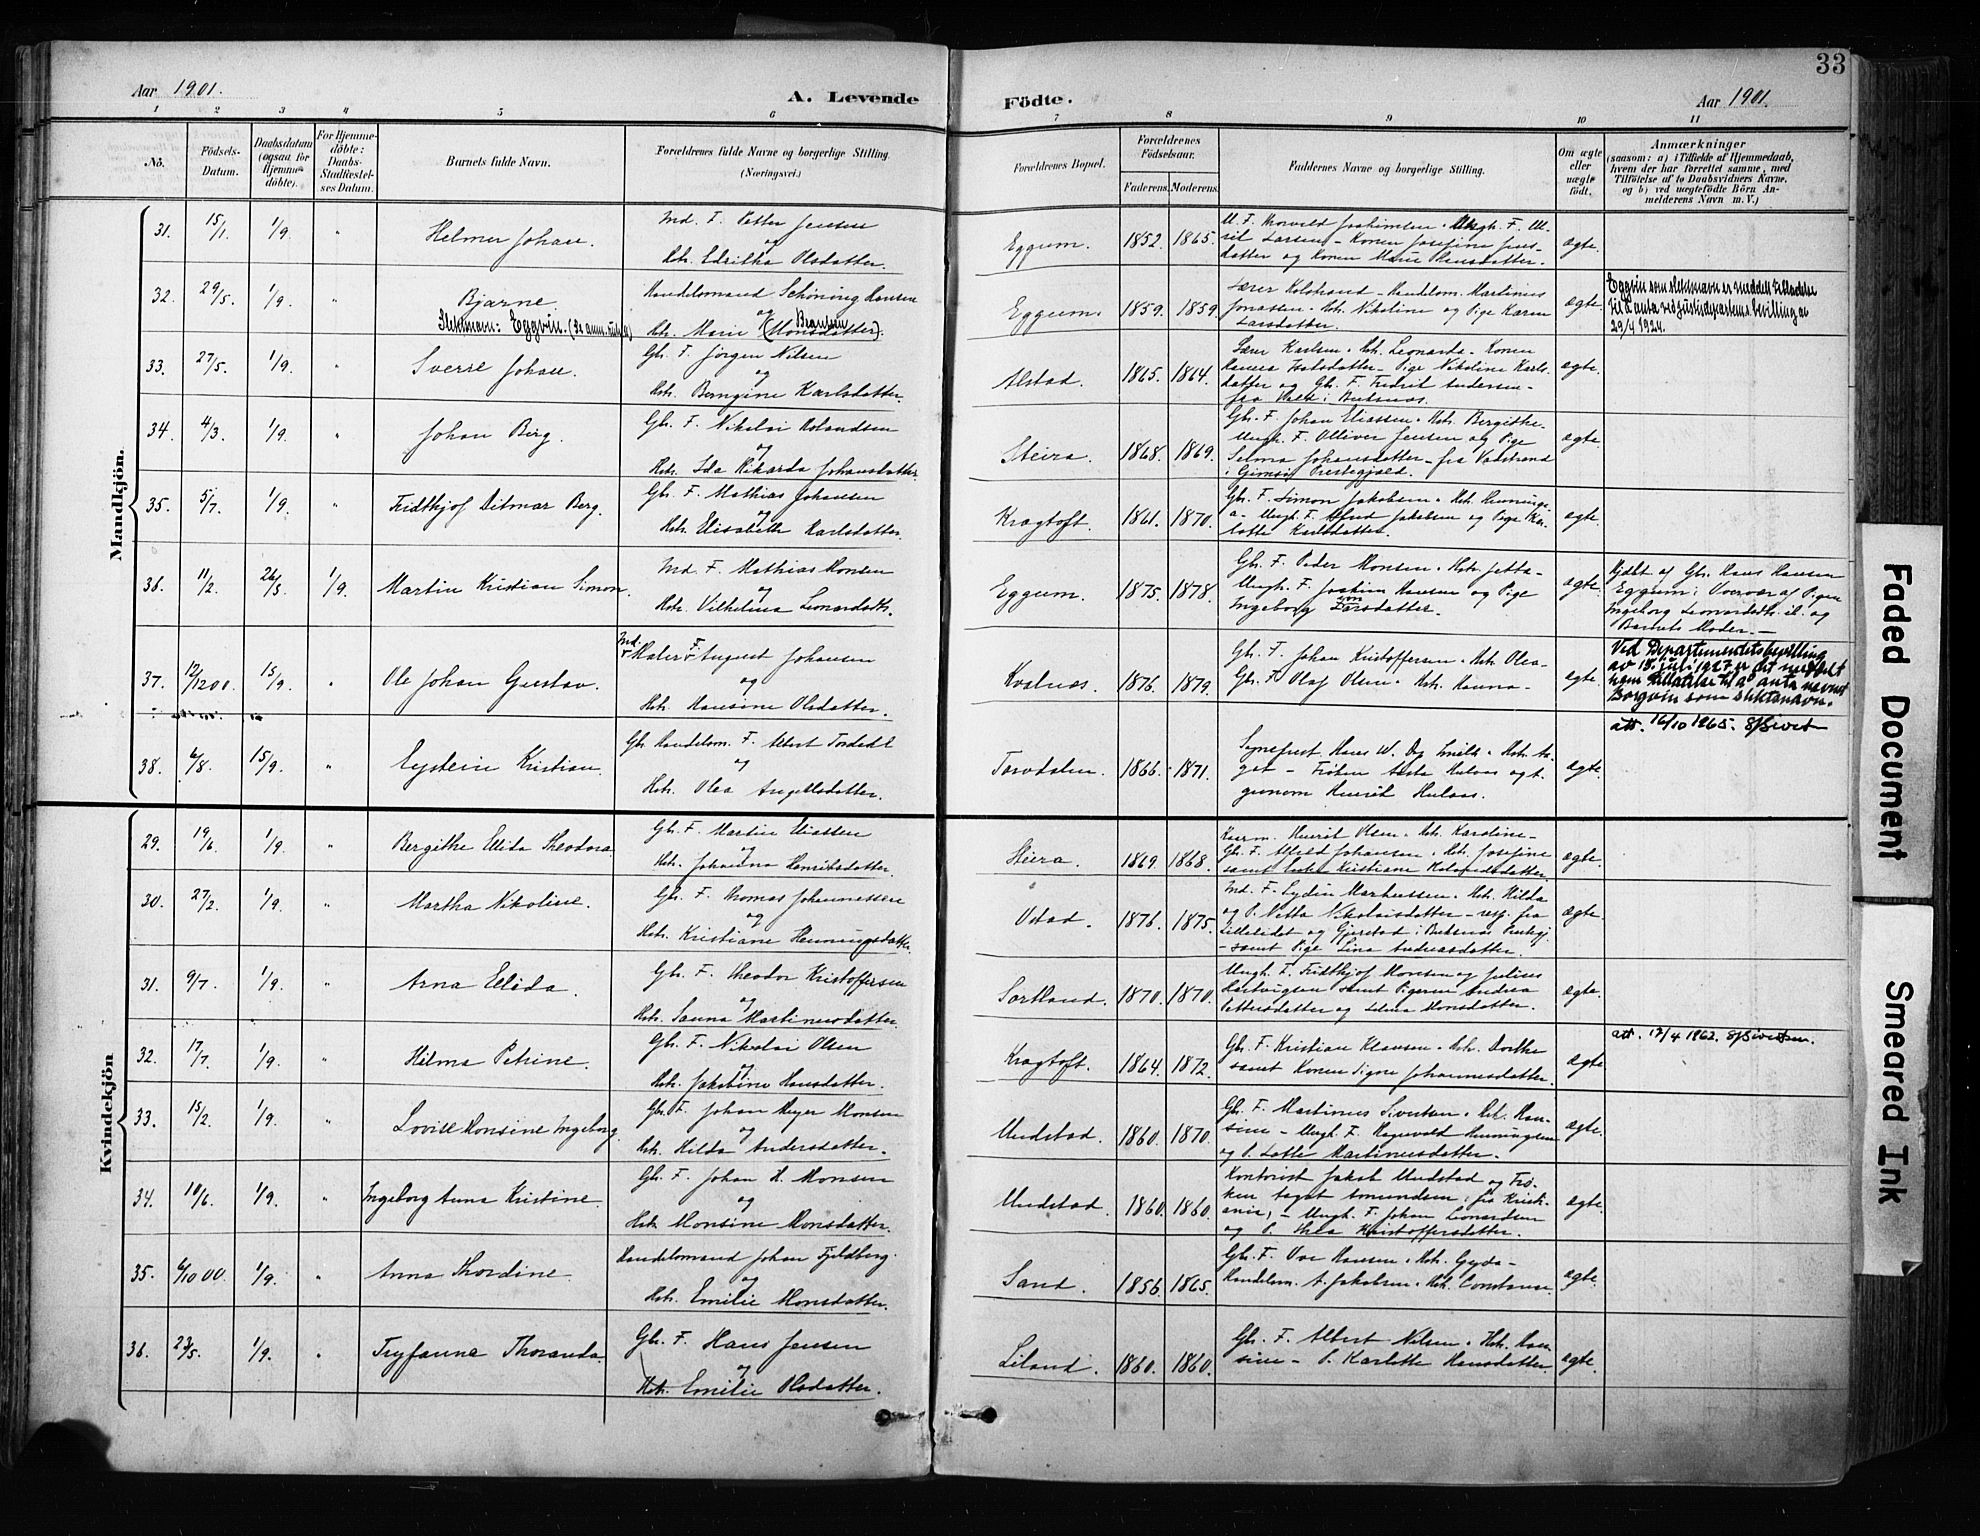 33
Aar 1901.
A. Levende Födte.
Aar 1901.
1 2 3 4 5 6 7 8 9 10 11
No.
Födsels-Datum.
Daabsdatum (ogsaa for Hjemmedöbte).
For Hjemmedöbte: Daabs-Stadfestelses Datum.
Barnets fulde Navn.
Forældrenes fulde Navne og borgerlige Stilling.
(Næringsvei.)
Forældrenes Bopæl.
Forældrenes Födselsaar.
Faderens. Moderens.
Faddernes Navne og borgerlige Stilling.
Om ægte eller uægte födt.
Anmærkninger
(saasom: a) i Tilfælde af Hjemmedaab,
hvem der har forrettet samme, med
Tilföielse af to Daabsvidners Navne,
og b) ved uægtefödte Börn An-
melderens Navn m. V.)
Mandkjön.
31. 15/1. 1/9. " Helmer Johan.
Ind. F. Petter Jensen
og
Hst. Edritha Olsdatter.
Eggum. 1852. 1865.
ægte.
32. 29/5. 1/9. " Bjarne
Slektsnavn: Eggvin. (Se anm. rubr.)
Handelsmand Schöning Hansen
og
Hst. Marie (Monsdatter).
Eggum. 1859. 1859.
Lærer Kolstrand - Handelsm. Martinus
Jonassen. Hst. Nikoline og Pige Karen
Larsdatter.
ægte.
Eggvin som slektsnavn er meddelt tilladelse
til å anta ved Justisdepartems bevilling av
29/4 1924.
33. 27/5. 1/9. Sverre Johan.
Gbr. F. Jörgen Nilsen
og
Hst. Berngine Karlsdatter.
Alstad. 1865. 1864.
Lærer Karlsen. Hst. Leonarda - Konen
Pige Nikoline Karls-
datter og Gbr. F. Fredrik Andersen -
ægte.
34. 4/3. 1/9. " Johan Berg.
Gbr. F. Nikolai Rolandsen
og
Hst. Ida Rikarda Johansdatter.
Steira. 1868. 1869.
Gbr. F. Johan Eliassen. Hst. Bergithe.
Ungk. F. Olliver Jensen og Pige
Selma Johansdatter - fra Vatstrand
i Gimsö Prestegjeld.
ægte
35. 5/7. 1/9. " Fridthjof Ditmar Berg.
Gbr. F. Mathias Johansen
og
Hst. Elisabeth Karlsdatter.
Kragtoft. 1861. 1870.
Gbr. F. Simon Jakobsen. Hst. Henning-
a - Ungk. F. Alfred Jakobsen og Pige Kar-
lotte Karlsdatter.
ægte.
36. 11/2. 26/5. 1/9. Martin Kristian Simon.
Ind. F. Mathias Monsen
og
Hst. Vilhelmina Leonardsdtr.
Eggum. 1875. 1878.
Gbr. F. Peder Monsen. Hst. Jetta -
Ungk. F. Joakim Hansen og Pige
Ingeborg Larsdatter.
ægte.
Hjdbt. af Gbr. Hans Hansen
Eggum i Overvær af Pigen
Ingeborg Leonardsdtr. og
Barnets Moder. -
37. 12/12 00. 15/9. " Ole Johan Gustav.
Ind. F.
Maler August Johansen
og
Hst. Hansine Olsdatter.
Kvalnes. 1876. 1879.
Gbr. F. Johan Kristoffersen. Hst. Olea -
Gbr. F. Olaf Olsen. Hst. Hanna -
ægte.
Ved Departementets bevilling
av 18. juli 1927 er det meddelt
ham tillatelse til å anta navnet
Borgvin som slektsnavn.
att. 16/10 1965.
38. 6/8. 15/9. " Eystein Kristian.
Gbr. Handelsm. F. Albert Torsdal
og
Hst. Olea Angellsdatter.
Torvdalen. 1866. 1871.
Sogneprest Hans W. Smith. Hst. Aa-
got - Fröken Aasta Hulaas og t.
gunom Henrik Hulaas.
ægte.
Kvindekjön
29. 19/6. 1/9. " Bergithe Elida Theodora.
Gbr. F. Martin Eliassen
og
Hst. Johanna Henriksdatter.
Steira. 1869. 1868.
Henrik Olsen. Hst. Karoline -
Gbr. F. Alfred Johansen. Hst. Josefine
samt Enke Kristiane Rolandsdatter.
ægte.
30. 27/2. 1/9. " Martha Nikoline.
Gbr. F. Thomas Johannessen
og
Hst. Kristiane Henningsdatter.
Ostad. 1876. 1875.
Ind. F. Lydin Markussen. Hst. Hilda
og P. Netta Nikolaisdatter - resp. fra
Lilleeidet og Gjerstad i Buksnes Prestegj.
- samt Pige Lina Andreasdatter.
ægte.
31. 9/7. 1/9. " Arna Elida.
Gbr. F. Theodor Kristoffersen
og
Hst. Sanna Martinusdatter.
Sortland. 1870. 1870.
Ungk. F. Fridthjof Monsen og Julius
Hartvigsen samt Pigerne Andrea
Pettersdatter og Selma Monsdatter.
ægte.
32. 17/7. 1/9. " Hilma Petrine.
Gbr. F. Nikolai Olsen
og
Hst. Jakobine Hansdatter.
Kragtoft. 1864. 1872.
Gbr. F. Kristian Klausen. Hst. Dorthe
samt Konen Signe Johannesdatter.
ægte
att. 12/4 1962.
33. 15/2. 1/9. " Lovise Monsine Ingeborg.
Gbr. F. Johan Meyer Monsen
og
Hst. Hilda Andersdatter.
Unstad. 1860. 1870.
Gbr. F. Martinus Sivertsen. Hst. Han-
sine - Ungk. F. Hagevald Henningsen
og P. Lotte Martinusdatter.
ægte.
34. 10/6. 1/9. " Ingeborg Anna Kristine.
Gbr. F. Johan H. Monsen
og
Hst. Monsine Monsdatter.
Unstad. 1860. 1860.
Kontorist Jakob Unstad og Frö-
ken Aagot Amundsen, fra Kristi-
ania, - Ungk. F. Johan Leonardsen
og P. Thea Kristoffersdatter.
ægte.
35. 6/10 00. 1/9. " Anna Thordine.
Handelsmand Johan Fjeldberg.
og
Hst. Emilie Monsdatter.
Sand. 1856. 1865.
Gbr. F. Ove Hansen. Hst. Gyda -
Handelsm. A. Jakobsen. Hst. Constanse.
ægte
36. 23/5. 1/9. " Tryfanna Thoranda.
Gbr. F. Hans Jensen
og
Hst. Emilie Olsdatter.
Liland. 1860. 1860.
Gbr. F. Albert Nilsen. Hst. Han-
sine - P. Karlotte Hansdatter.
ægte.
Faded Document
Smeared Ink